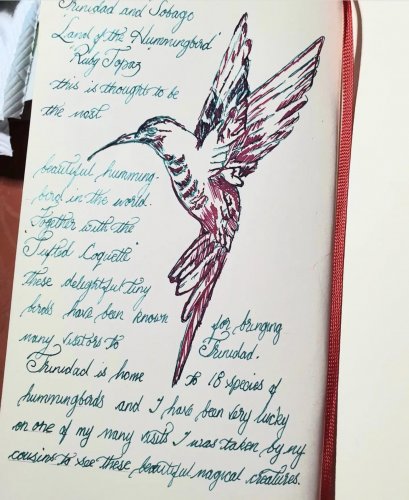 Trinidad and Tobago
'Land of the Hummingbird'
'Ruby Topaz
this is thought to be
the most
beautiful humming-
bird in the world.
Together with the
'Tufted Coquette'
these delightful tiny
birds have been known for bringing
many visitors to Trinidad.
Trinidad is home to 18 species of
hummingbirds and I have been very lucky
on one of my many visits I was taken by my
cousins to see these beautiful magical creatures.